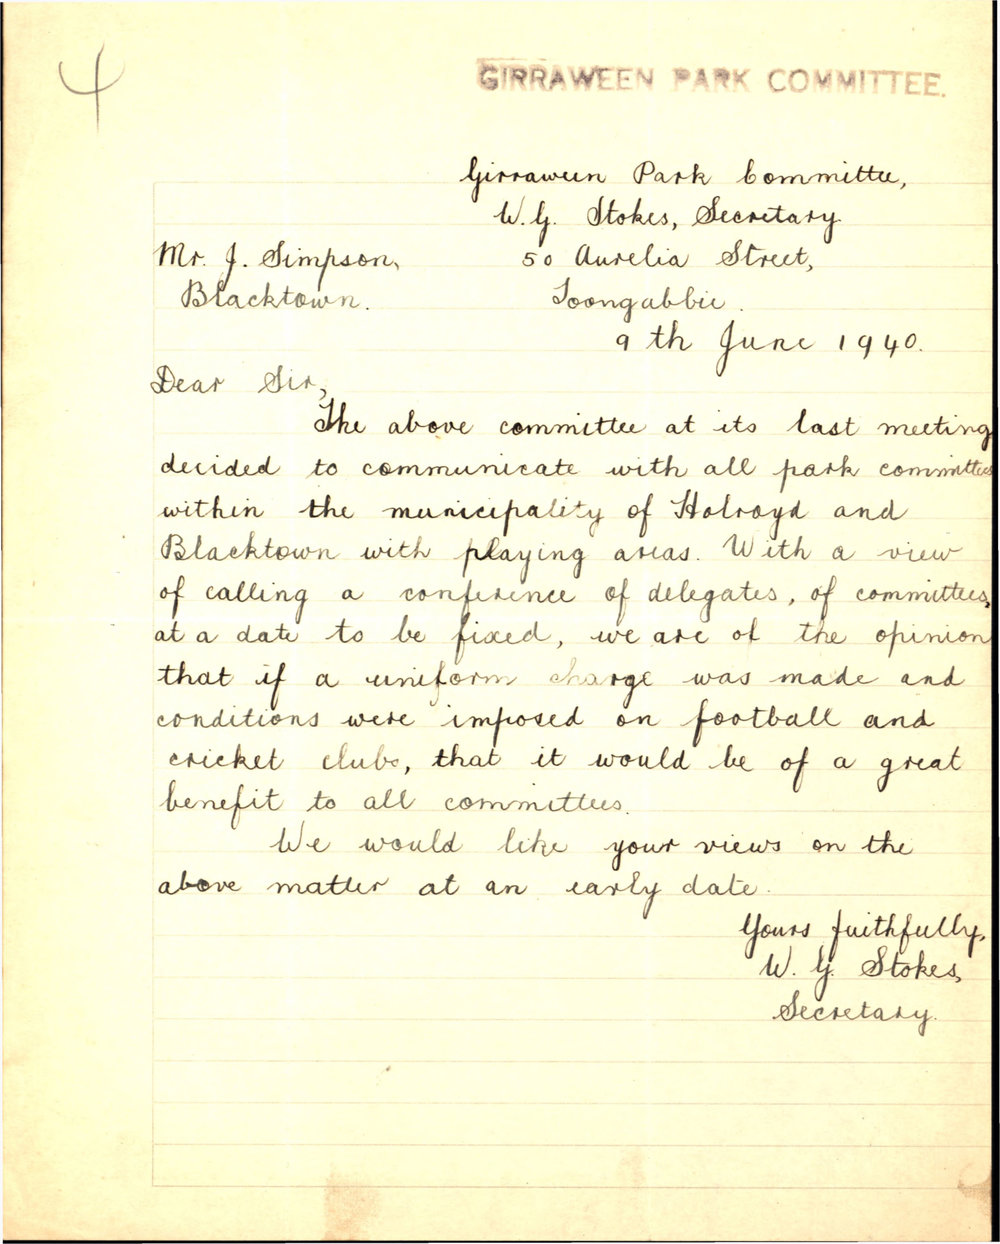 4
GIRRAWEEN PARK COMMITTEE.
Girraween Park Committee,
W. G. Stokes, Secretary
Mr. J. Simpson, 50 Aurelia Street,
Blacktown. Toongabbie.
9th June 1940.
Dear Sir,
The above committee at its last meeting
decided to communicate with all park committees
within the municipality of Holroyd and
Blacktown with playing areas. With a view
of calling a conference of delegates, of committees,
at a date to be fixed, we are of the opinion
that if a uniform charge was made and
conditions were imposed on football and
cricket clubs, that it would be of a great
benefit to all committees.
We would like your views on the
above matter at an early date.
Yours faithfully,
W. G. Stokes,
Secretary.